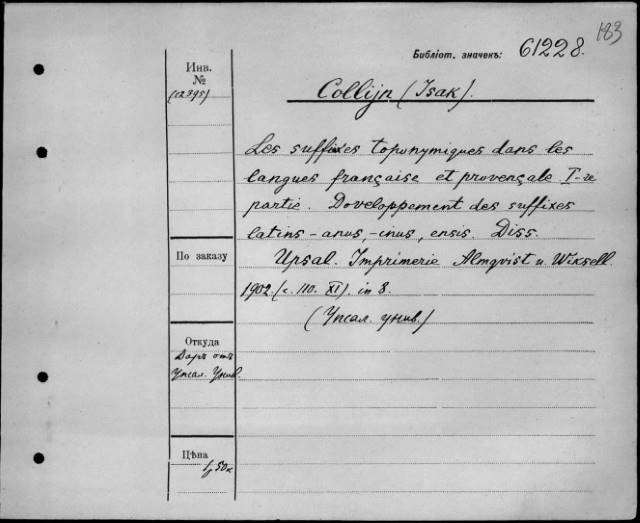 183
Библіот. значекъ: 61228.
Инв.
№
Collijn (Isak).
Les suffixes toponymiques dans les
langues française et provençale I-re
partie. Doveloppement des suffixes
latins -anus, -inus, ensis. Diss.
По заказу
Upsal. Imprimerie Almqvist u. Wiksell.
1902. (с. 110. XI). in 8.
(Упсал. унив.)
Откуда
Даръ отъ
Упсал. Унив.
Цѣна
1р 50к